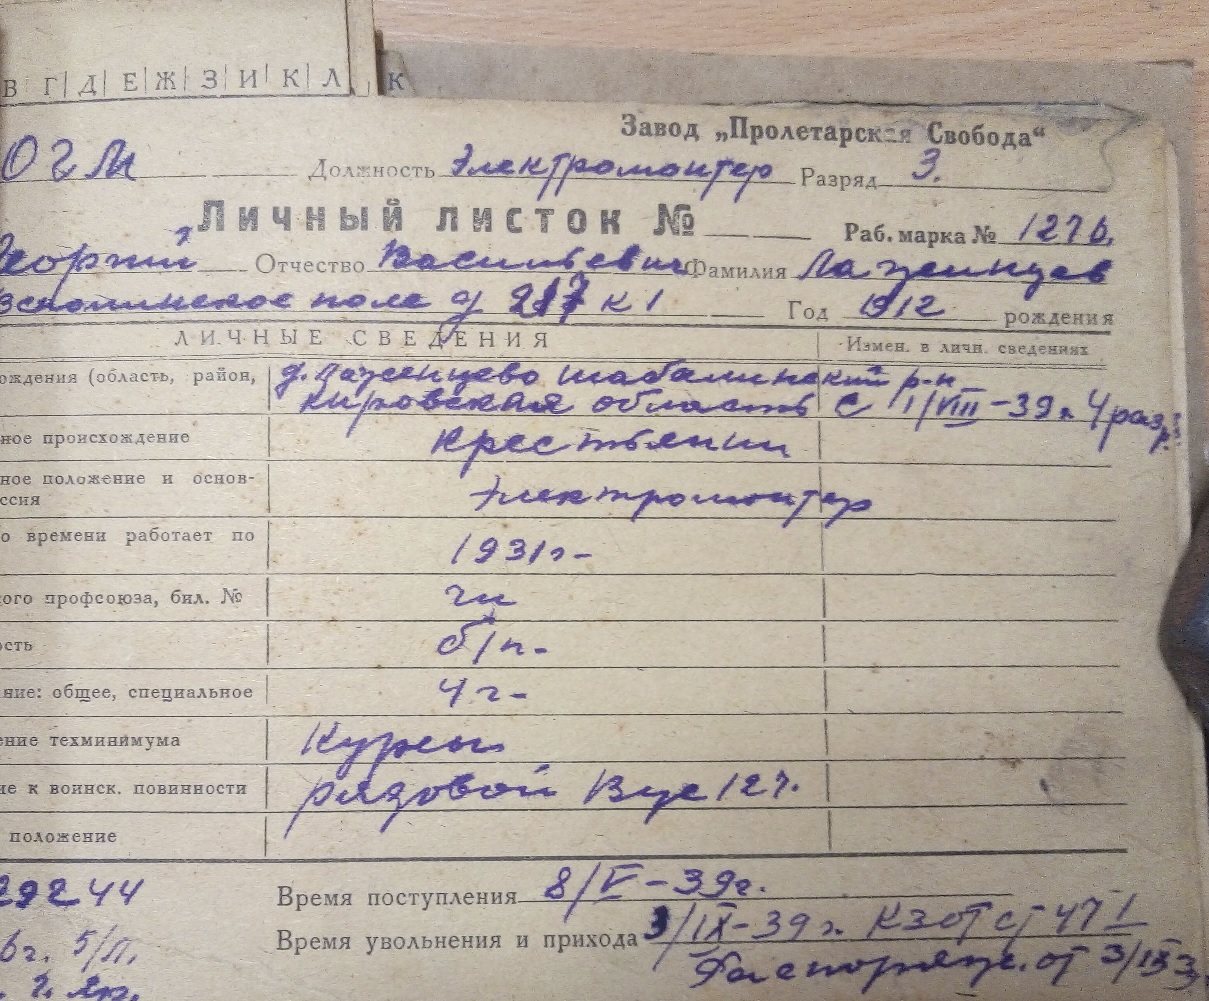 В Г Д Е Ж З И К Л К
Завод „Пролетарская Свобода“
ОГМ Должность Электромонтер Разряд 3.
Личный листок №
Раб. марка № 1276.
Георгий Отчество Васильевич Фамилия Лаженцев
Вспольинское поле д 217 к 1 Год 1912 рождения
ЛИЧНЫЕ СВЕДЕНИЯ Измен. в личн. сведениях
ождения (область, район, д. Лаженцево шабалинский р-н
кировская область С 1/VIII-39г 4 разр.
ное происхождение Крестьянин
ное положение и основ-
ссия Электромонтер
о времени работает по 1931г-
ого профсоюза, бил. № чл
ость б/п.
ние: общее, специальное 4 г-
ение техминимума Курсы
ие к воинск. повинности рядовой Вус 127.
положение
29244 Время поступления 8/V-39г.
6г. 5/П. Время увольнения и прихода 3/IX-39г. КЗОТ ст 47 I
Распоряж. от 3/IX 3